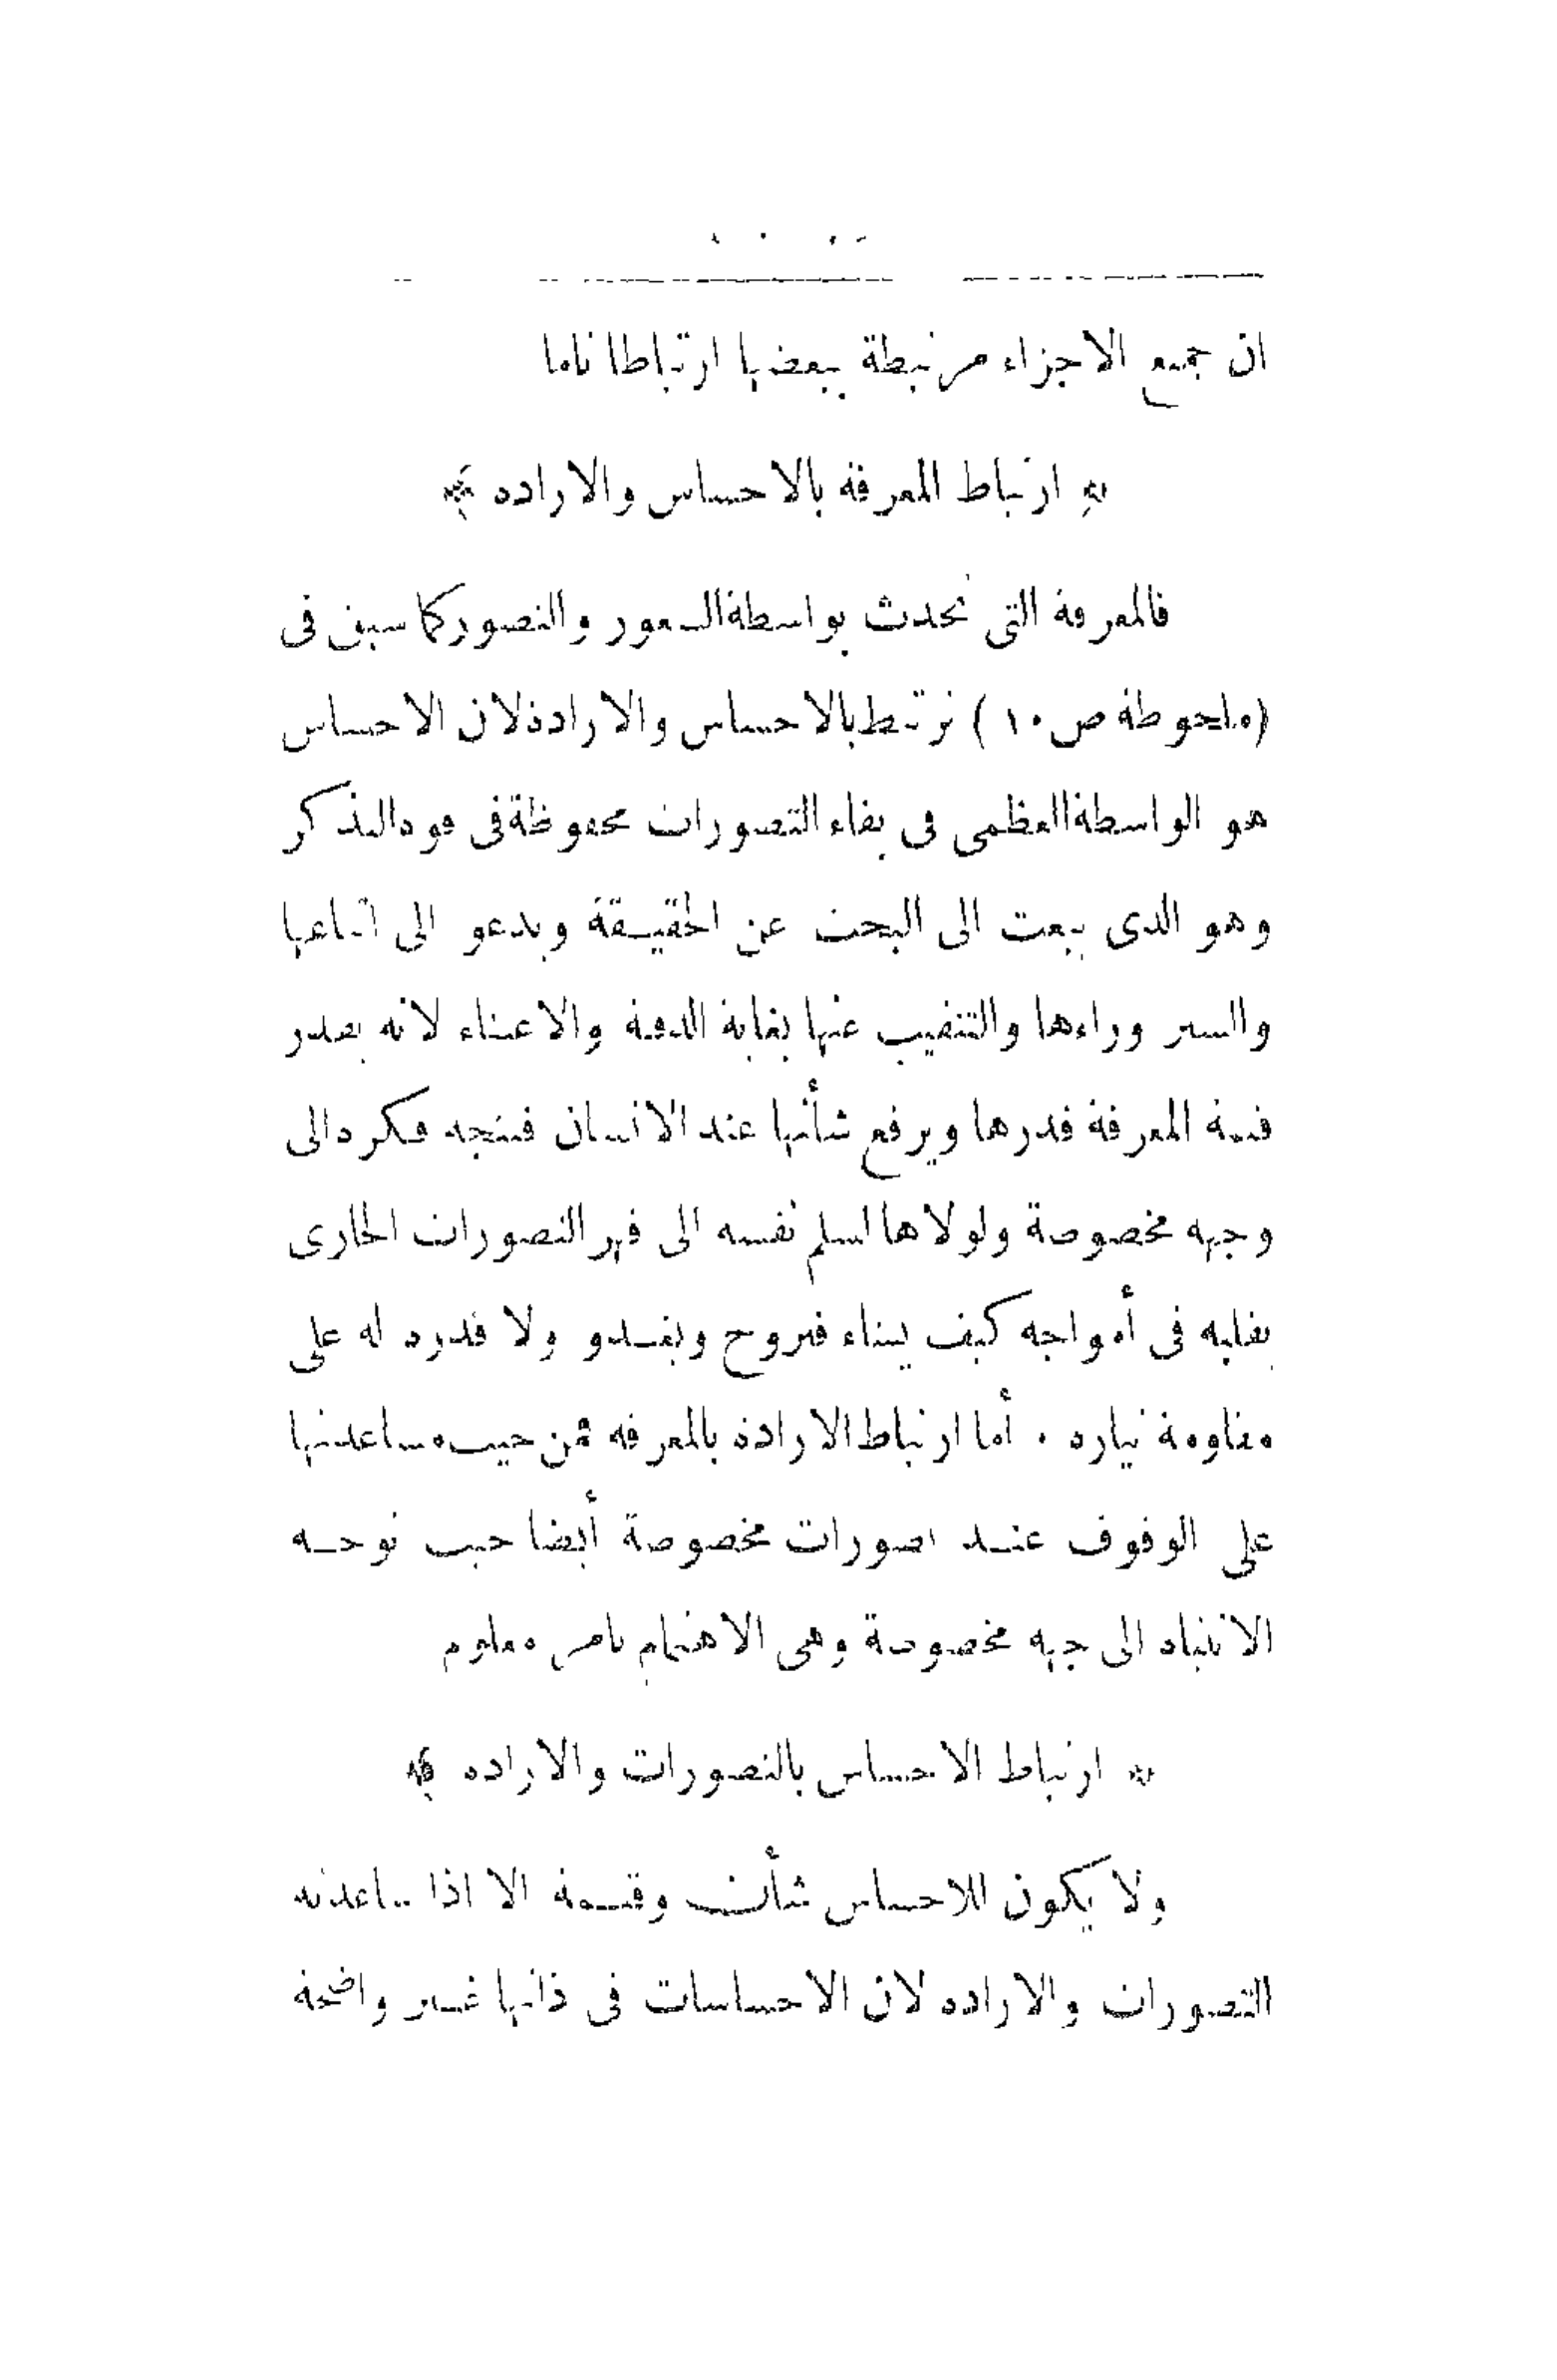 ان جميع الاجزاء مرتبطة ببعضها ارتباطا تاما
﴿ ارتباط المعرفة بالاحساس والارادة ﴾
فالمعرفة التى تحدث بواسطة الشعور والتصور كما سبق فى
(ملحوظة ص ١٠) ترتبط بالاحساس والارادة لان الاحساس
هو الواسطة العظمى فى بقاء التصورات محفوظة فى قوة التذكر
وهو الذى يبعث الى البحث عن الحقيقة ويدعو الى اتباعها
والسير وراءها والتنقيب عنها بغاية الدقة والاعتناء لانه يقدر
قيمة المعرفة قدرها ويرفع شأنها عند الانسان فيتجه فكره الى
وجهه مخصوصة ولولاها اسلم نفسه الى قهر التصورات الجارى
يقلبه فى أمواجه كيف يشاء فيروح ويغدو ولا قدرة له على
مقاومة تياره . أما ارتباط الارادة بالمعرفة فمن حيث مساعدتها
على الوقوف عند تصورات مخصوصة أيضا حيث توجه
الانتباه الى جهه مخصوصة وهى الاهتمام بامر معلوم
﴿ ارتباط الاحساس بالتصورات والارادة ﴾
ولا يكون للاحساس شأن وقيمة الا اذا ساعدته
التصورات والارادة لان الاحساسات فى ذاتها غير واضحة